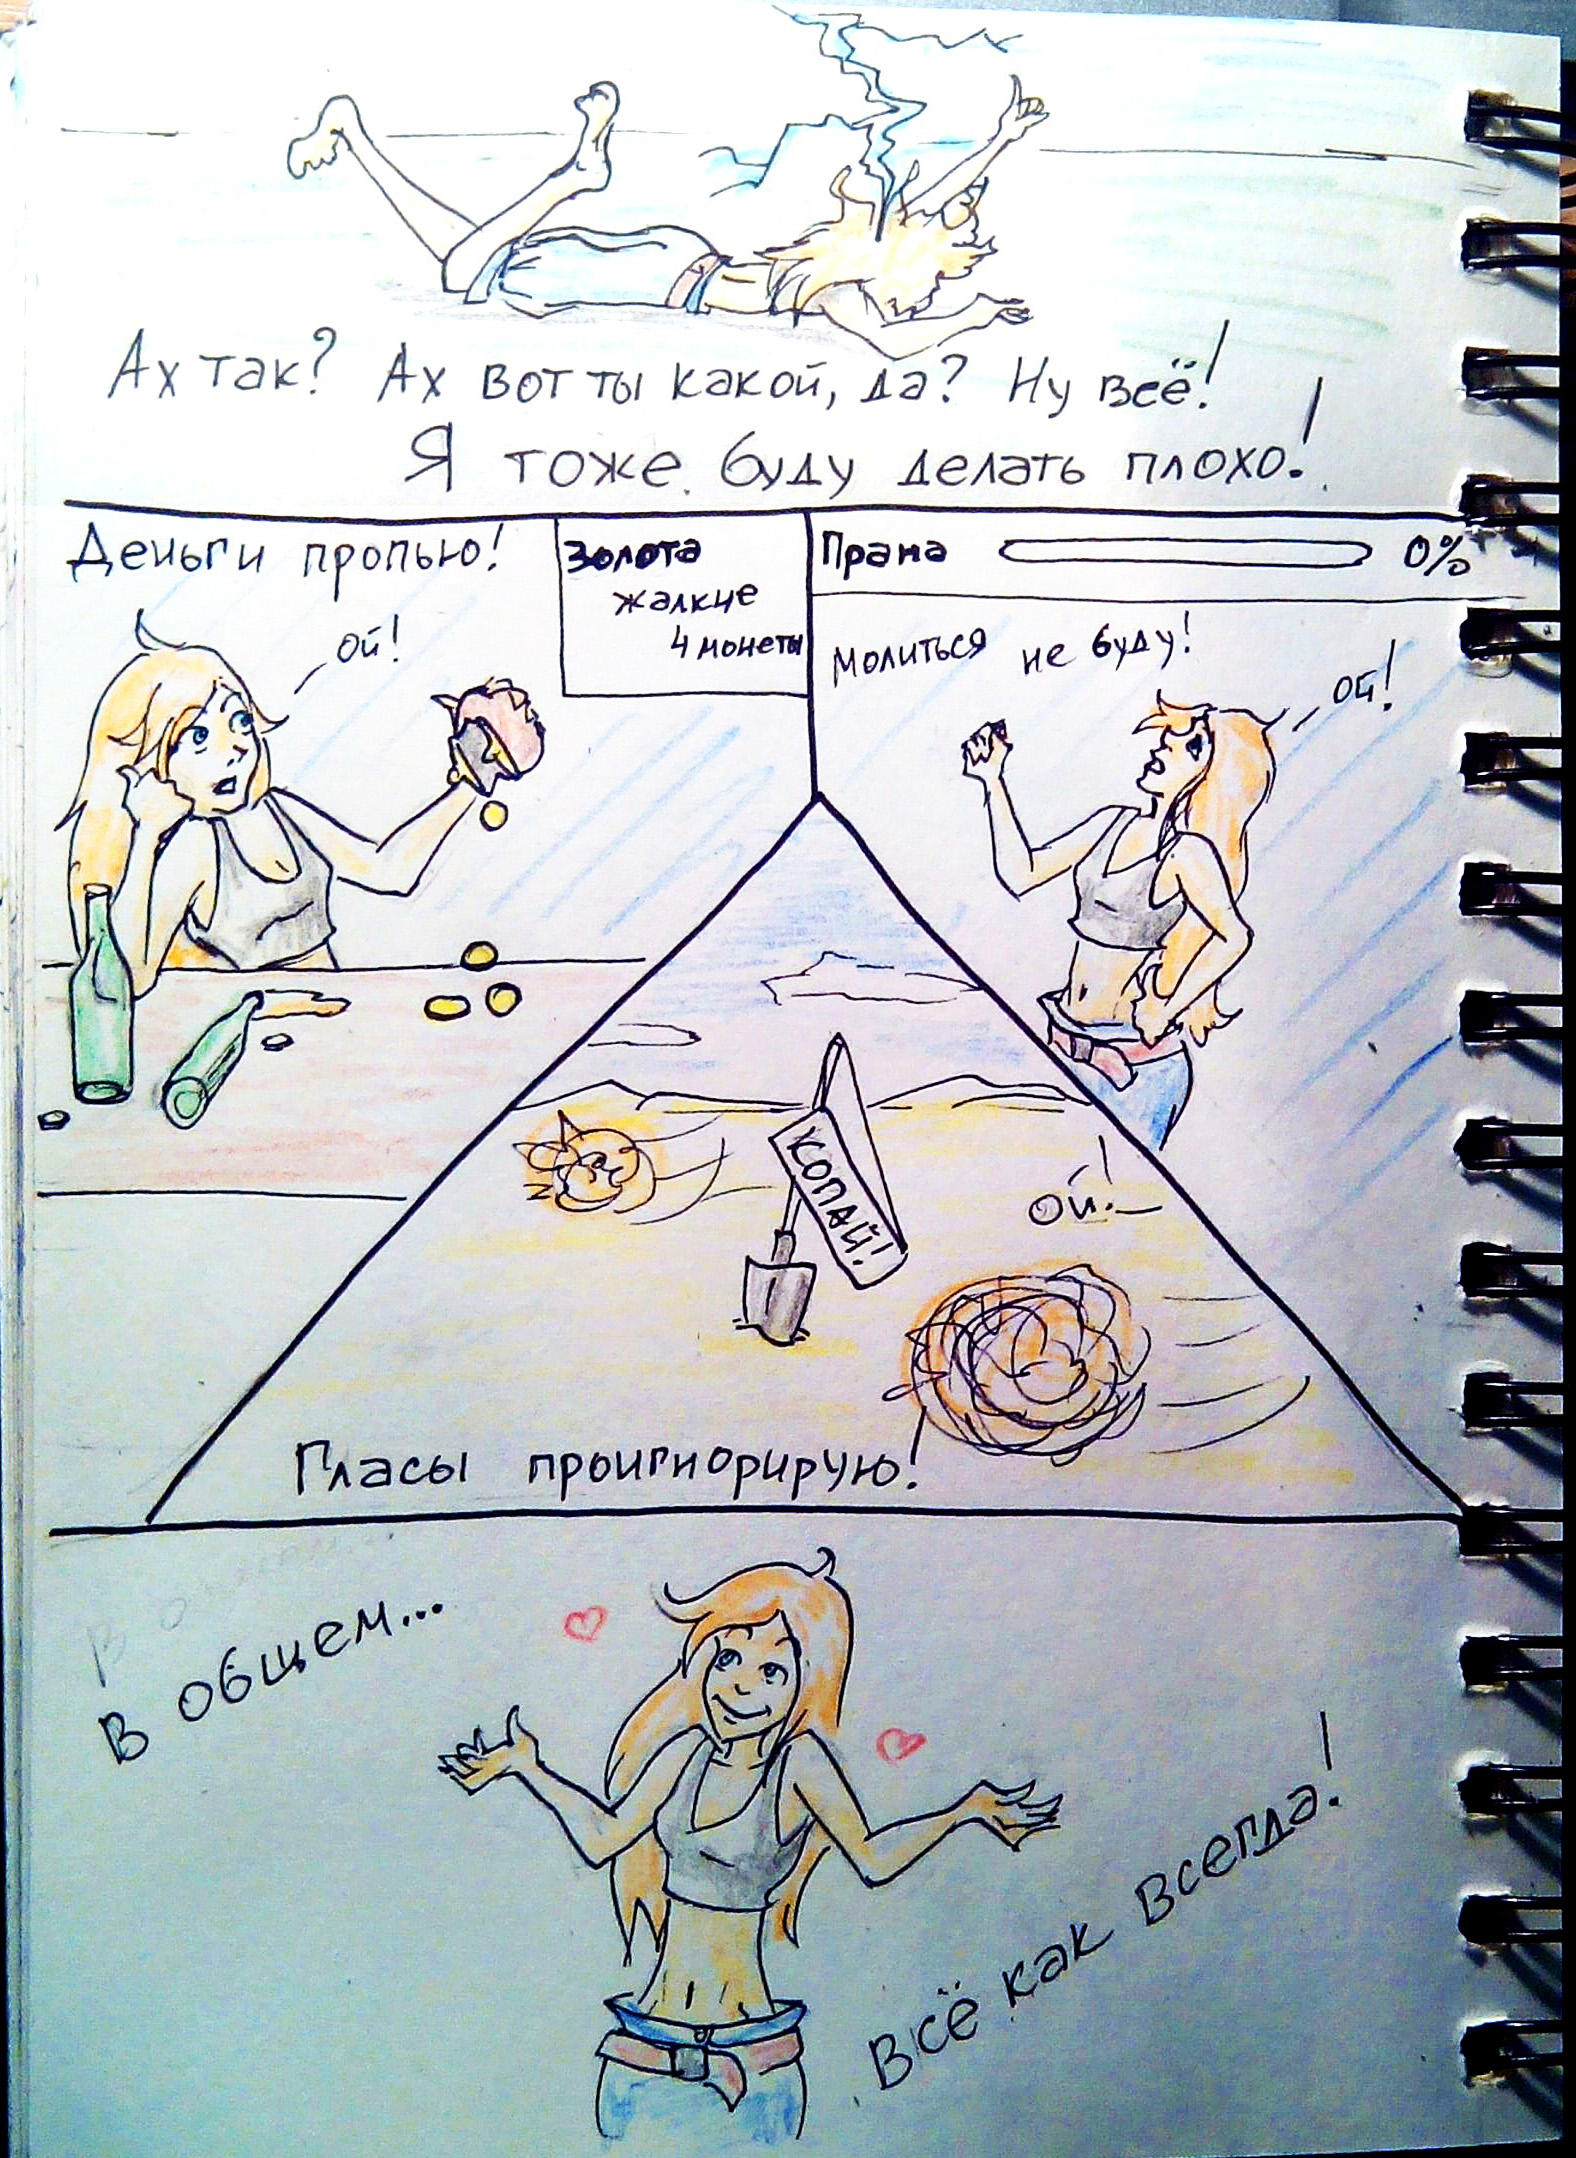 Ах так? Ах вот ты какой, да? Ну всё!
Я тоже буду делать плохо!
Деньги пропью!
ой!
Золота
жалкие
4 монеты
Прана 0%
молиться не буду!
ой!
КОПАЙ!
ой!
Гласы проигнорирую!
В общем...
Всё как всегда!